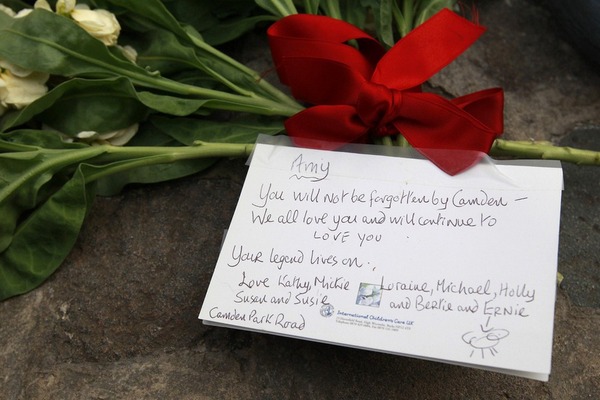 Amy
You will not be forgotten by Camden –
We all love you and will continue to
LOVE YOU .
Your legend lives on..
Love Kathy, Mickie Loraine, Michael, Holly
Susan and Susie and Bertie and ERNIE
Camden Park Road
International Children's Care UK